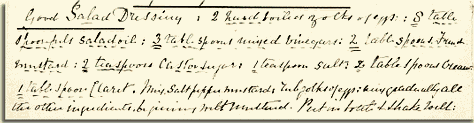 Good Salad Dressing: 2 hard boiled yolks of eggs: 8 table
spoonfuls salad oil: 3 table spoons mixed vinegars: 2 table spoons French
mustard: 2 teaspoons Castor sugar: 1 teaspoon salt: 2 table spoons Cream:
1 table spoon Claret. Mix salt pepper mustard & rub yolks of eggs: by gradually all
the other ingredients, beginning with mustard. Put in bottle & shake well: